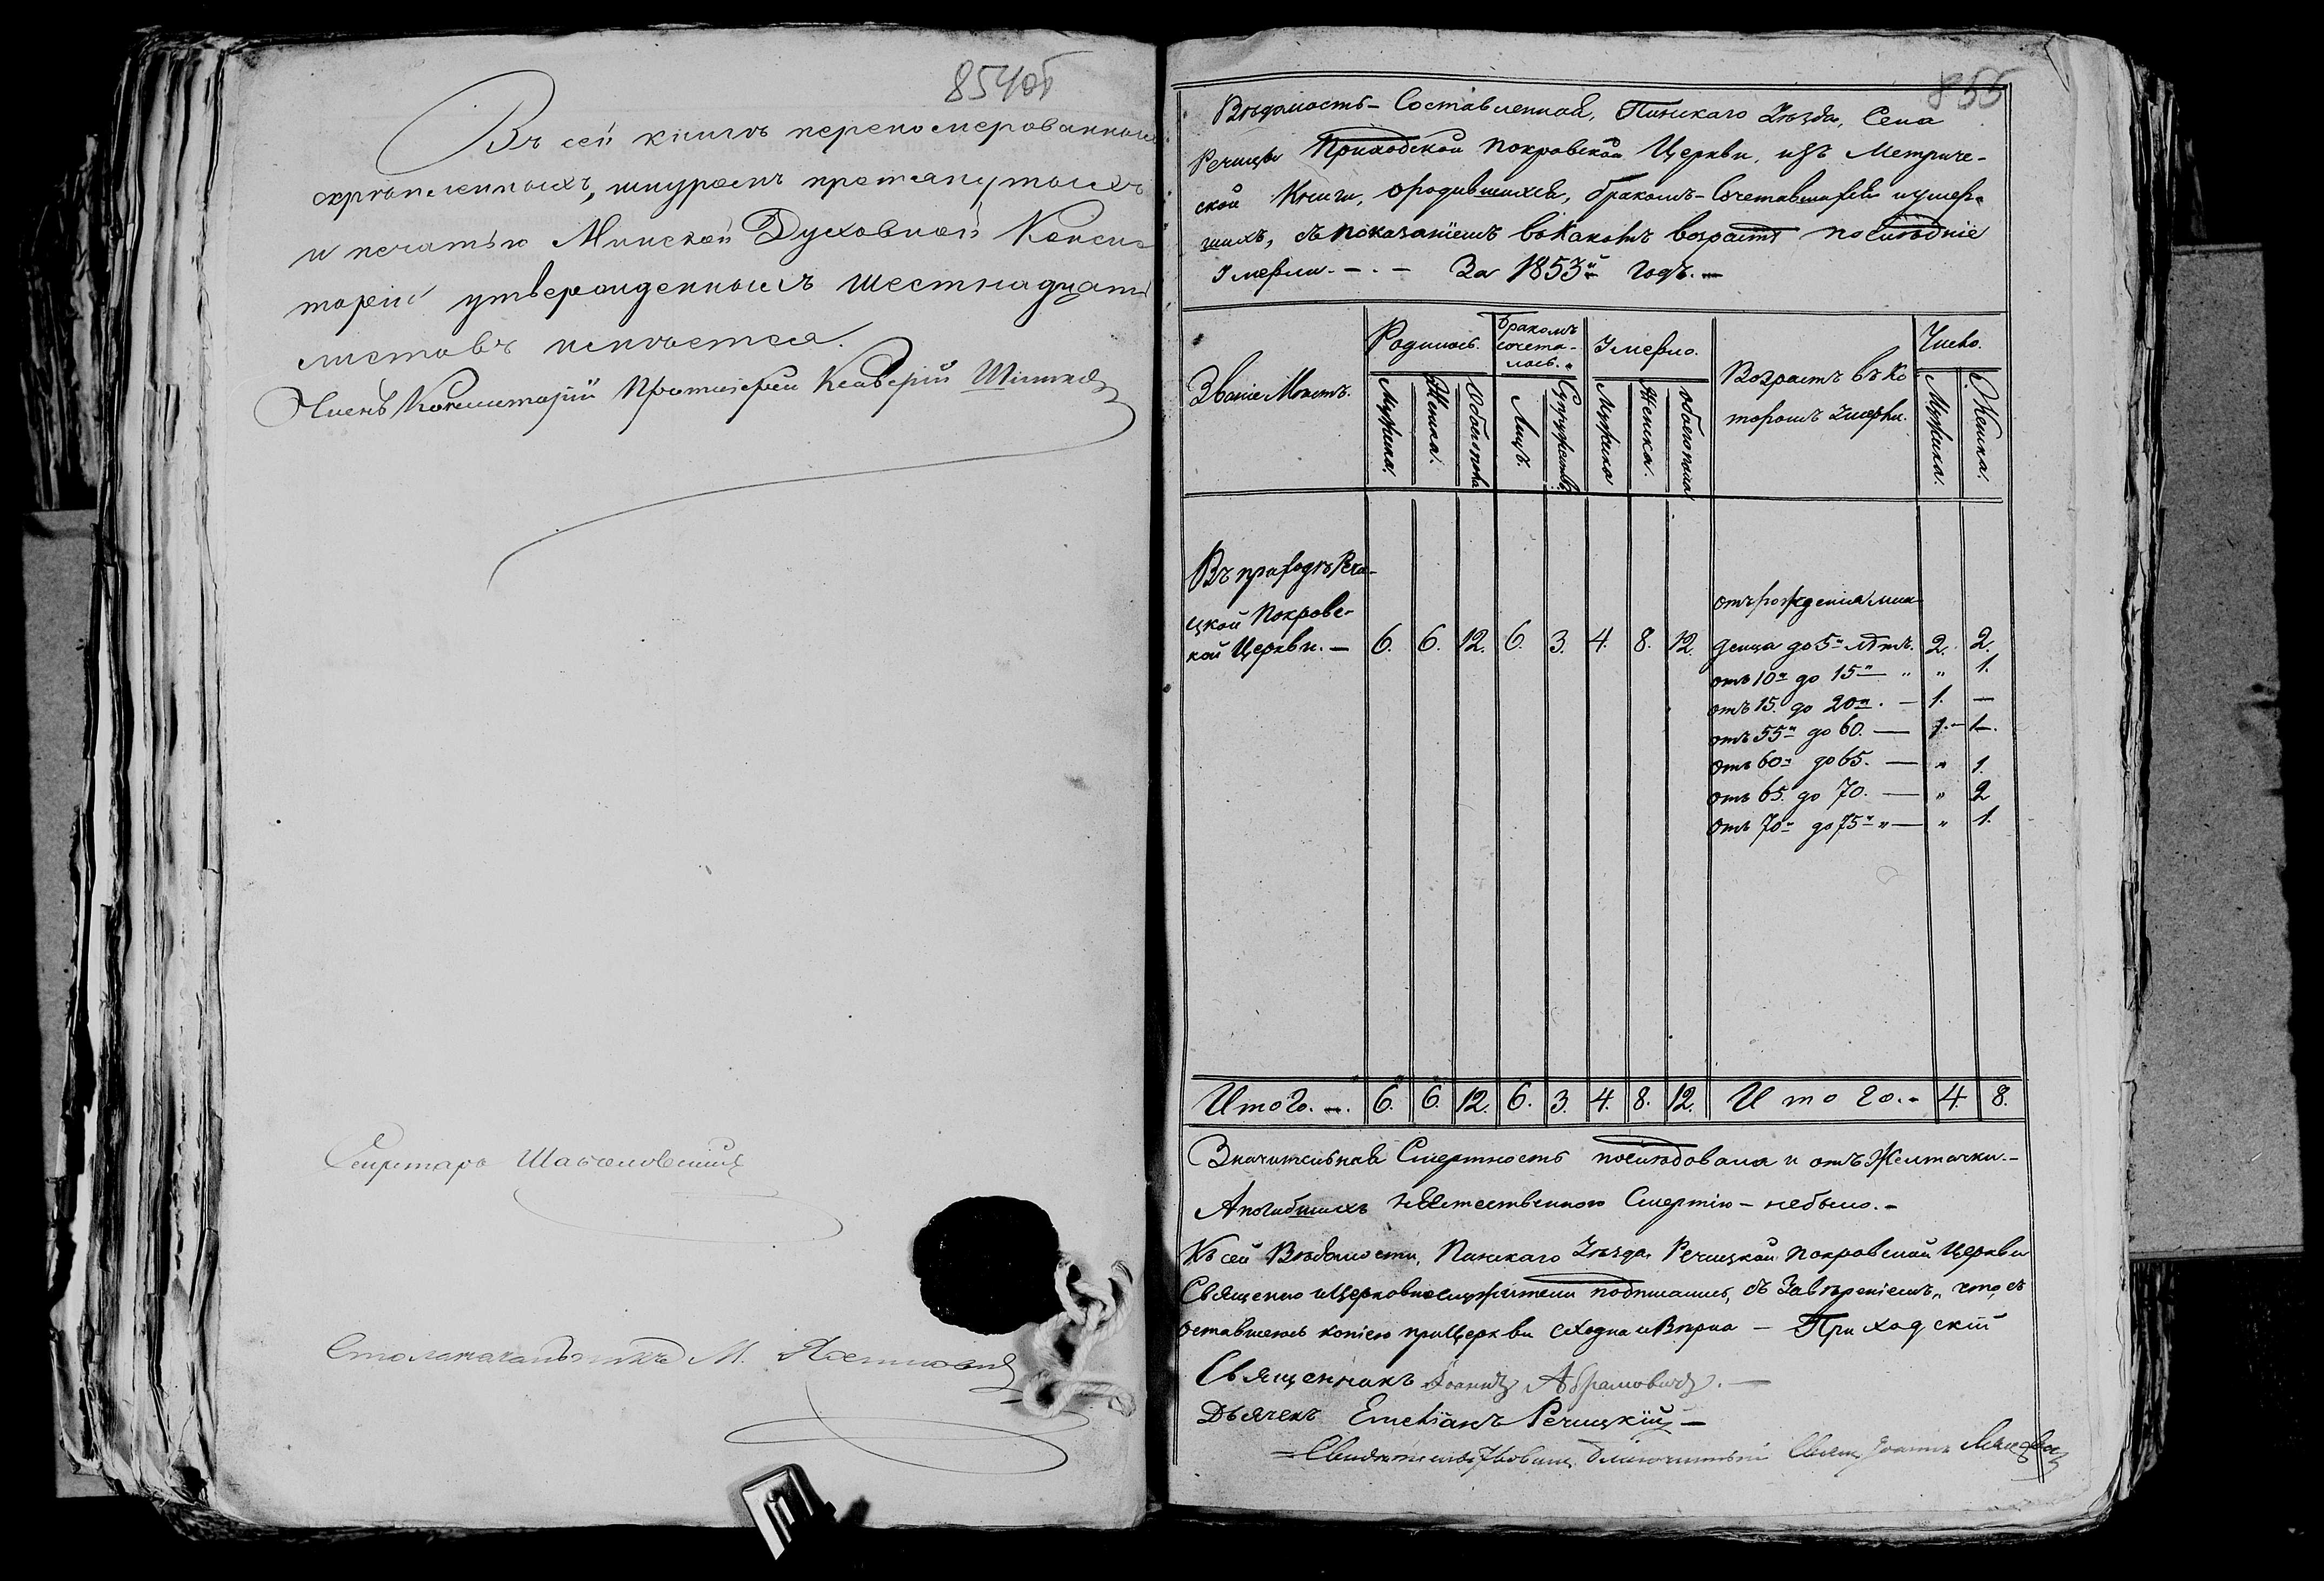 854об
Въ сей книгѣ перенумерованныхъ
скрѣпленныхъ, шнуромъ протянутыхъ
и печатью Минской Духовной Консис-
торіи утвержденныхъ шестнадцать
листовъ имѣется.
Членъ Консисторіи Протоіерей
Секретарь
Столоначальникъ М.
855
Вѣдомость Составленная, Пинскаго Уѣзда, Села
Речицы Приходской Покровской Церкви, изъ Метриче-
ской Книги, о родившихся, бракомъ Сочетавшихся и умер-
шихъ, съ показаніемъ въ какомъ возрастѣ послѣдніе
Умерли. — . — За 1853й годъ. —
Званіе Мѣстъ. Родилось. Бракомъ сочета-лось. Умерло. Возрастъ въ Ко-торомъ Умерли. Число.
Мужска. Женска. Обоего пола Лицъ. Супружествъ. Мужска Женска. Обоего пола Мужска. Женска.
Въ приходѣ Речи-
цкой Покровс-
кой Церкви. — 6. 6. 12. 6. 3. 4. 8. 12.
отъ рожденія мла-
денца до 5и лѣтъ. 2. 2.
отъ 10и до 15и — " " 1.
отъ 15. до 20и. — 1. —
отъ 55и до 60. — 1. — 1.
отъ 60и до 65. — " 1.
отъ 65. до 70. — " 2
отъ 70и до 75и " — " 1.
Итого. —. 6. 6. 12. 6. 3. 4. 8. 12. Итого. - 4. 8.
Значительная Смертность послѣдовала и отъ Желтачки. —
А погибшихъ неестественною Смертію — небыло. —
Къ сей Вѣдомости, Пинскаго Уѣзда, Речицкой Покровской Церкви
Священно и Церковнослужители подписались, съ Завѣреніемъ, что съ
оставшеюсь копіею при Церкви сходна и Вѣрна — Приходскій
Священникъ Іоаннъ Абрамовичъ. —
Дьячекъ Емеліанъ Речицкій —
Свидѣтельствовалъ Благочинный Свящ. Іоаннъ